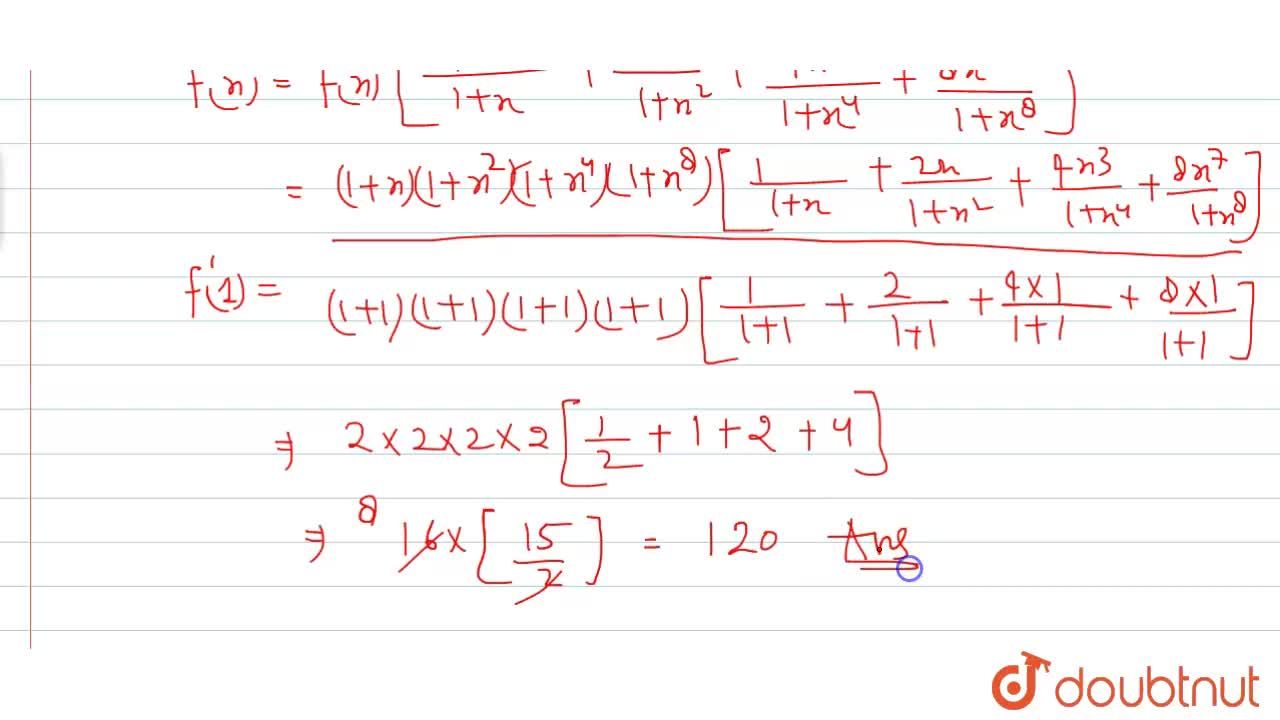 f(x) = f(x) [ 1+x 1+x² 1+x⁴ + 1+x⁸ ]
= (1+x)(1+x²)(1+x⁴)(1+x⁸) [ 1/1+x + 2x/1+x² + 4x3/1+x⁴ + 8x⁷/1+x⁸ ]
f'(1) = (1+1)(1+1)(1+1)(1+1) [ 1/1+1 + 2/1+1 + 4×1/1+1 + 8×1/1+1 ]
⇒ 2×2×2×2 [ 1/2 + 1 + 2 + 4 ]
⇒ 8 16× [ 15/2 ] = 120 Ans
doubtnut